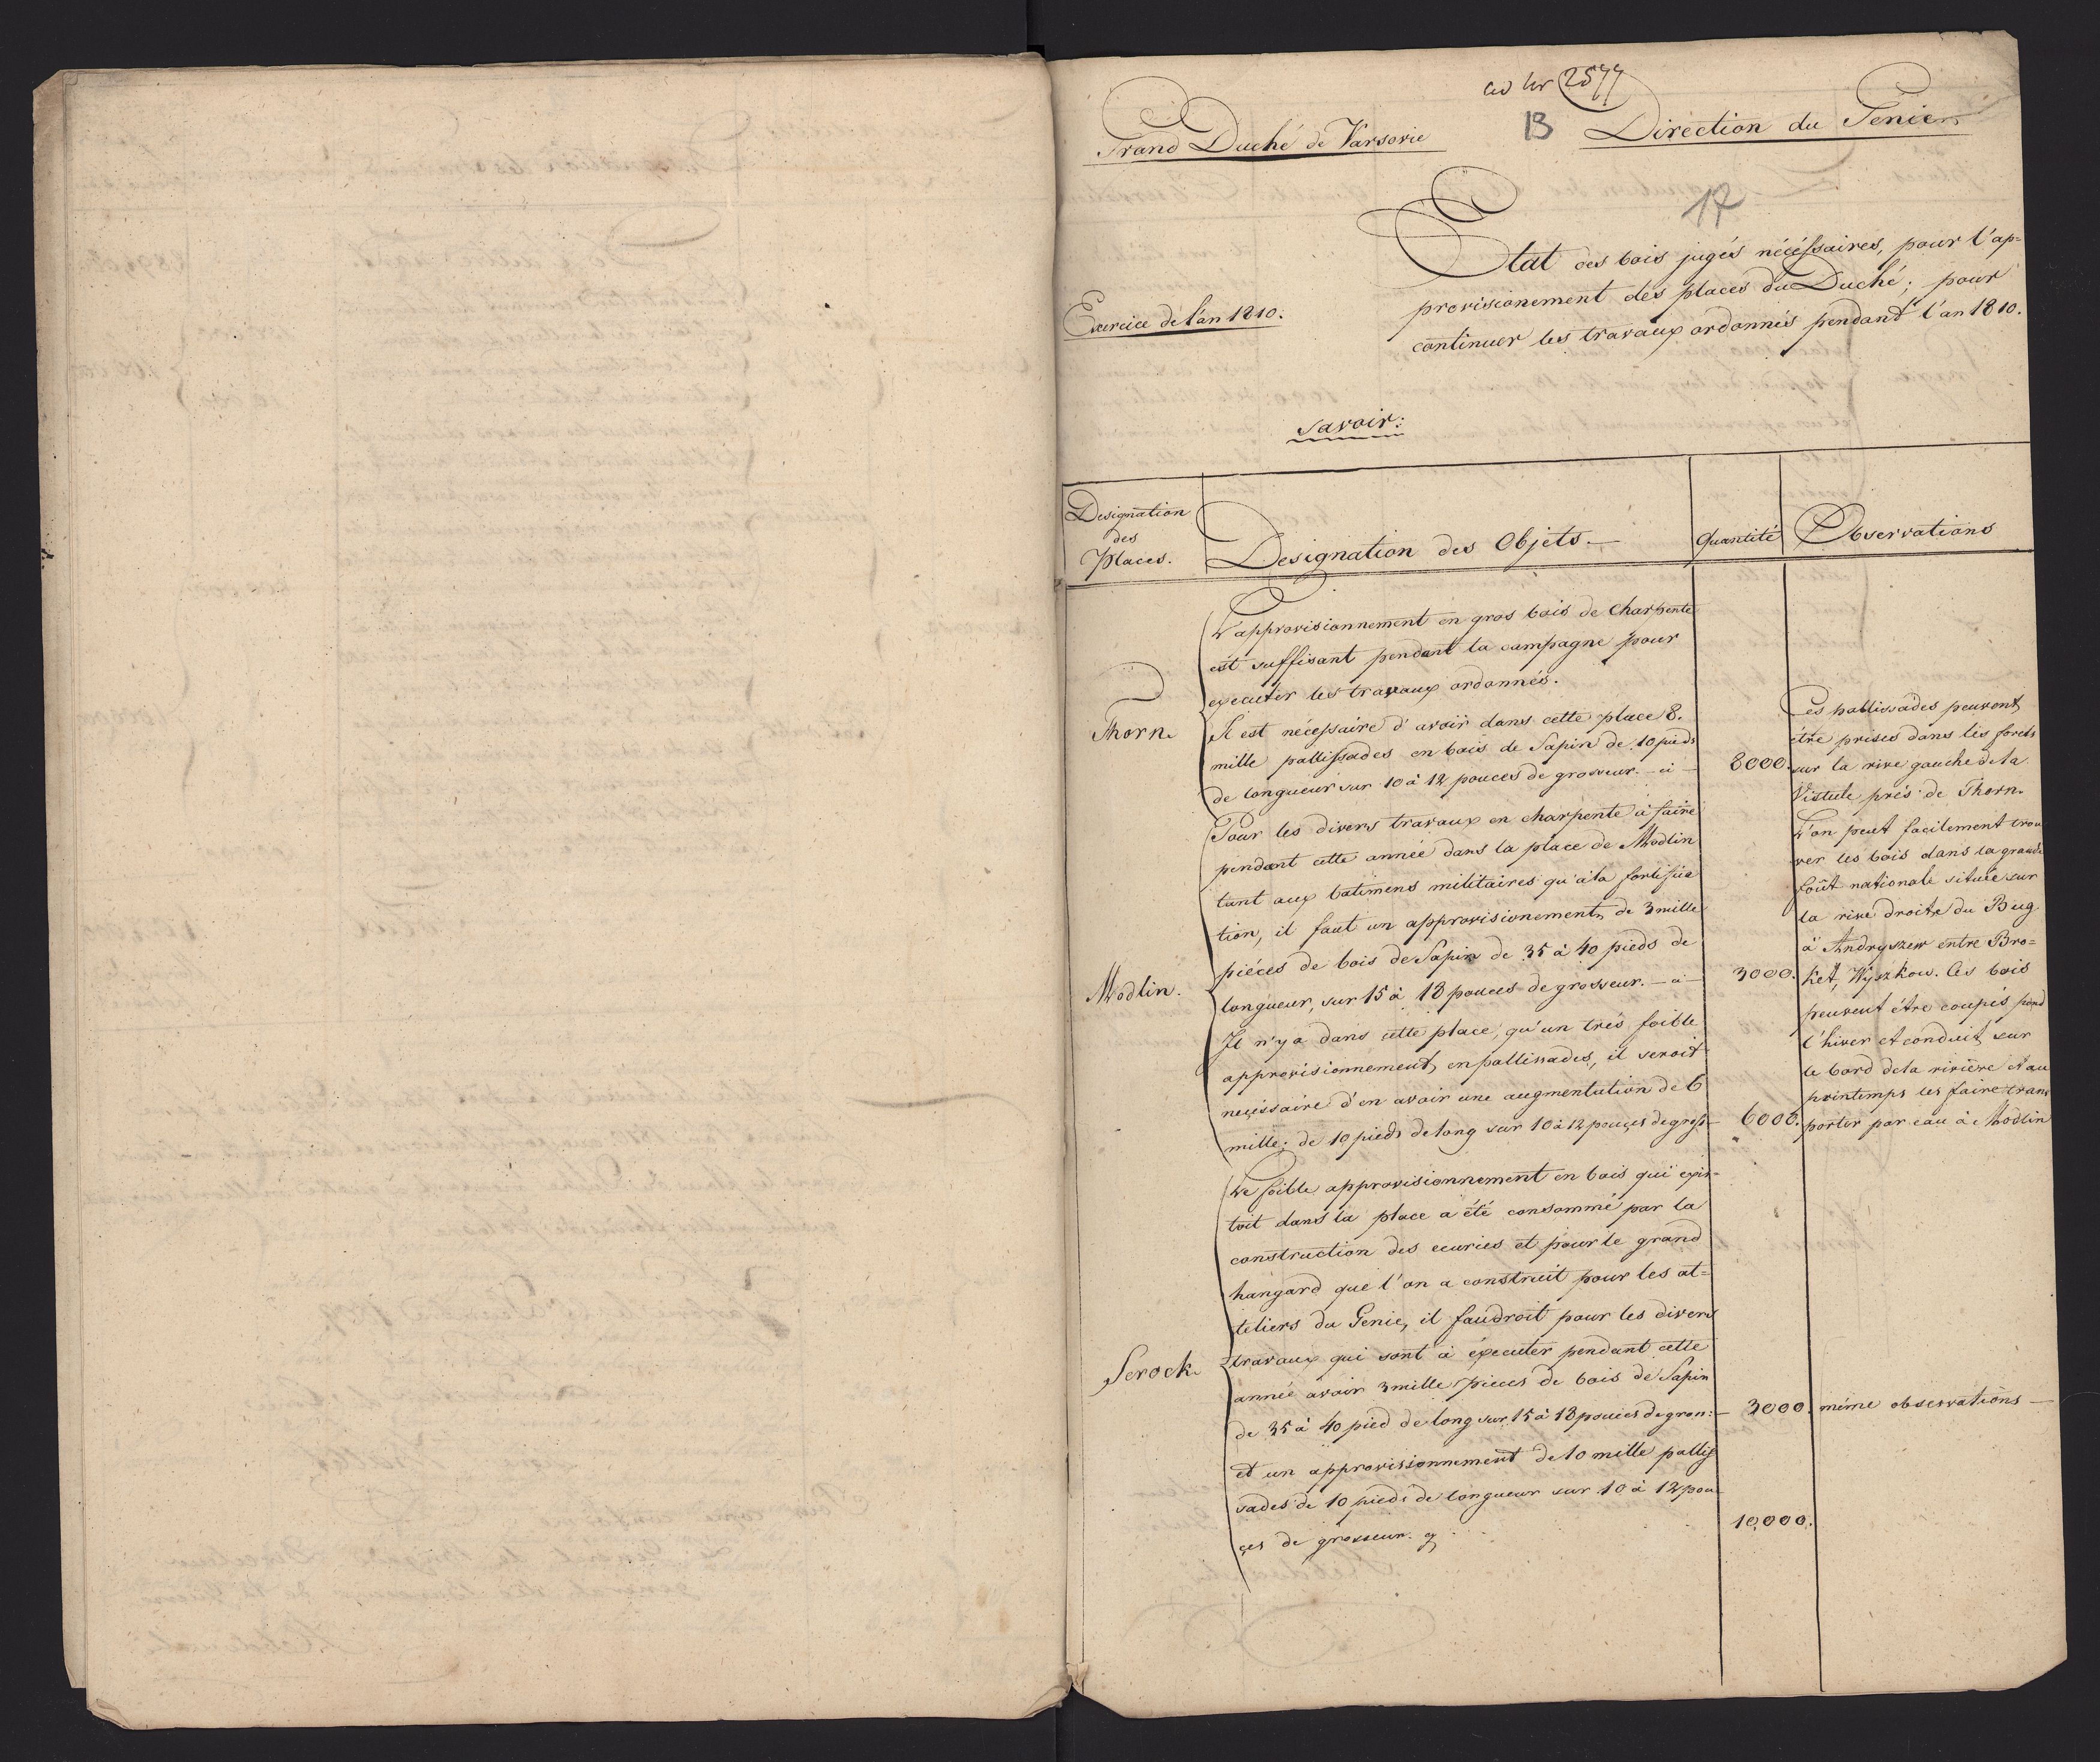 ad Nr 2577
13
Grand Duché de Varsovie
Direction du Génie
17
Etat des bois jugés nécéssaires, pour l'ap=
provisionement des places du Duché; pour
continuer les travaux ordonnés pendant l'an 1810.
Exercice de l'an 1810.
savoir:
Designation
des
Places.
Designation des Objets.
Quantité
Observations
Thorn
L'approvisionnement en gros bois de charpente
est suffisant pendant la campagne pour
executer les travaux ordonnés.
Il est nécessaire d'avoir dans cette place 8.
mille pallissades en bois de Sapin de 10 pieds
de longueur sur 10 à 12 pouces de grosseur. - ci -
8000.
Ces pallissades peuvent
être prises dans les forets
sur la rive gauche de la
Vistule prés de Thorn.
Modlin.
Pour les divers travaux en charpente à faire
pendant cette année dans la place de Modlin
tant aux batimens militaires qu'à la fortifica
tion, il faut un approvisionement de 3 mille
piéces de bois de Sapin de 35 à 40 pieds de
longueur, sur 15 à 18 pouces de grosseur. - ci -
3000.
Il n'y a dans cette place, qu'un trés foible
approvisionnement en pallissades, il seroit
necissaire d'en avoir une augmentation de 6
mille; de 10 pieds de long sur 10 à 12 pouces de gross
6000.
L'on peut facilement trou
ver les bois dans la grande
foût nationale située sur
la rive droite du Bug
à Andryszew entre Bro=
ket, Wyszkow. Ces bois
peuvent être coupés pend
l'hiver et conduit sur
le bord de la rivière et au
printemps les faire trans
porter par eau à Modlin
Serock
Le foible approvisionnement en bois qui exis-
toit dans la place a été consommé par la
construction des ecuries et pour le grand
hangard que l'on a construit pour les at=
teliers du Genie, il faudroit pour les divers
travaux qui sont à éxecuter pendant cette
année avoir 3 mille pieces de bois de Sapin
de 35 à 40 pied de long sur 15 à 18 pouces de gros:-
3000.
même observations -
et un approvisionnement de 10 mille pallis
sades de 10 pieds de longueur sur 10 à 12 pou
çes de grosseur.
10,000.